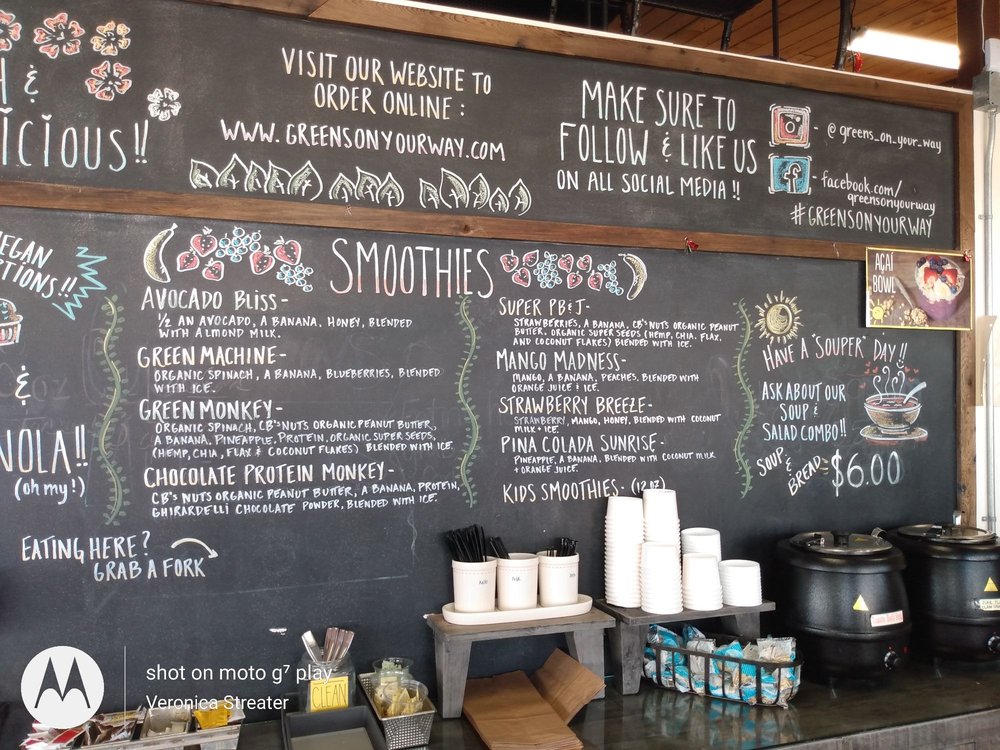 &
ICIOUS!!
VISIT OUR WEBSITE TO
ORDER ONLINE:
WWW.GREENSONYOURWAY.COM
MAKE SURE TO
FOLLOW & LIKE US
ON ALL SOCIAL MEDIA!!
- @greens_on_your_way
- facebook.com/
greensonyourway
#GREENSONYOURWAY
VEGAN
OPTIONS!!
&
NOLA!!
(oh my!)
SMOOTHIES
AVOCADO BLISS-
1/2 AN AVOCADO, A BANANA, HONEY, BLENDED
WITH ALMOND MILK.
GREEN MACHINE-
ORGANIC SPINACH, A BANANA, BLUEBERRIES, BLENDED
WITH ICE.
GREEN MONKEY-
ORGANIC SPINACH, CB'S NUTS ORGANIC PEANUT BUTTER,
A BANANA, PINEAPPLE, PROTEIN, ORGANIC SUPER SEEDS,
(HEMP, CHIA, FLAX & COCONUT FLAKES) BLENDED WITH ICE.
CHOCOLATE PROTEIN MONKEY-
CB'S NUTS ORGANIC PEANUT BUTTER, A BANANA, PROTEIN,
GHIRARDELLI CHOCOLATE POWDER, BLENDED WITH ICE.
SUPER PB&J-
STRAWBERRIES, A BANANA, CB'S NUTS ORGANIC PEANUT
BUTTER, ORGANIC SUPER SEEDS (HEMP, CHIA, FLAX,
AND COCONUT FLAKES) BLENDED WITH ICE.
MANGO MADNESS-
MANGO, A BANANA, PEACHES, BLENDED WITH
ORANGE JUICE & ICE.
STRAWBERRY BREEZE-
STRAWBERRY, MANGO, HONEY, BLENDED WITH COCONUT
MILK + ICE.
PINA COLADA SUNRISE-
PINEAPPLE, A BANANA, BLENDED WITH COCONUT MILK
+ ORANGE JUICE.
KIDS SMOOTHIES- (12 OZ)
AÇAÍ
BOWL
HAVE A "SOUPER" DAY!!
ASK ABOUT OUR
SOUP &
SALAD COMBO!!
SOUP &
BREAD
$6.00
EATING HERE?
GRAB A FORK
CLEAN
shot on moto g⁷ play
Veronica Streater